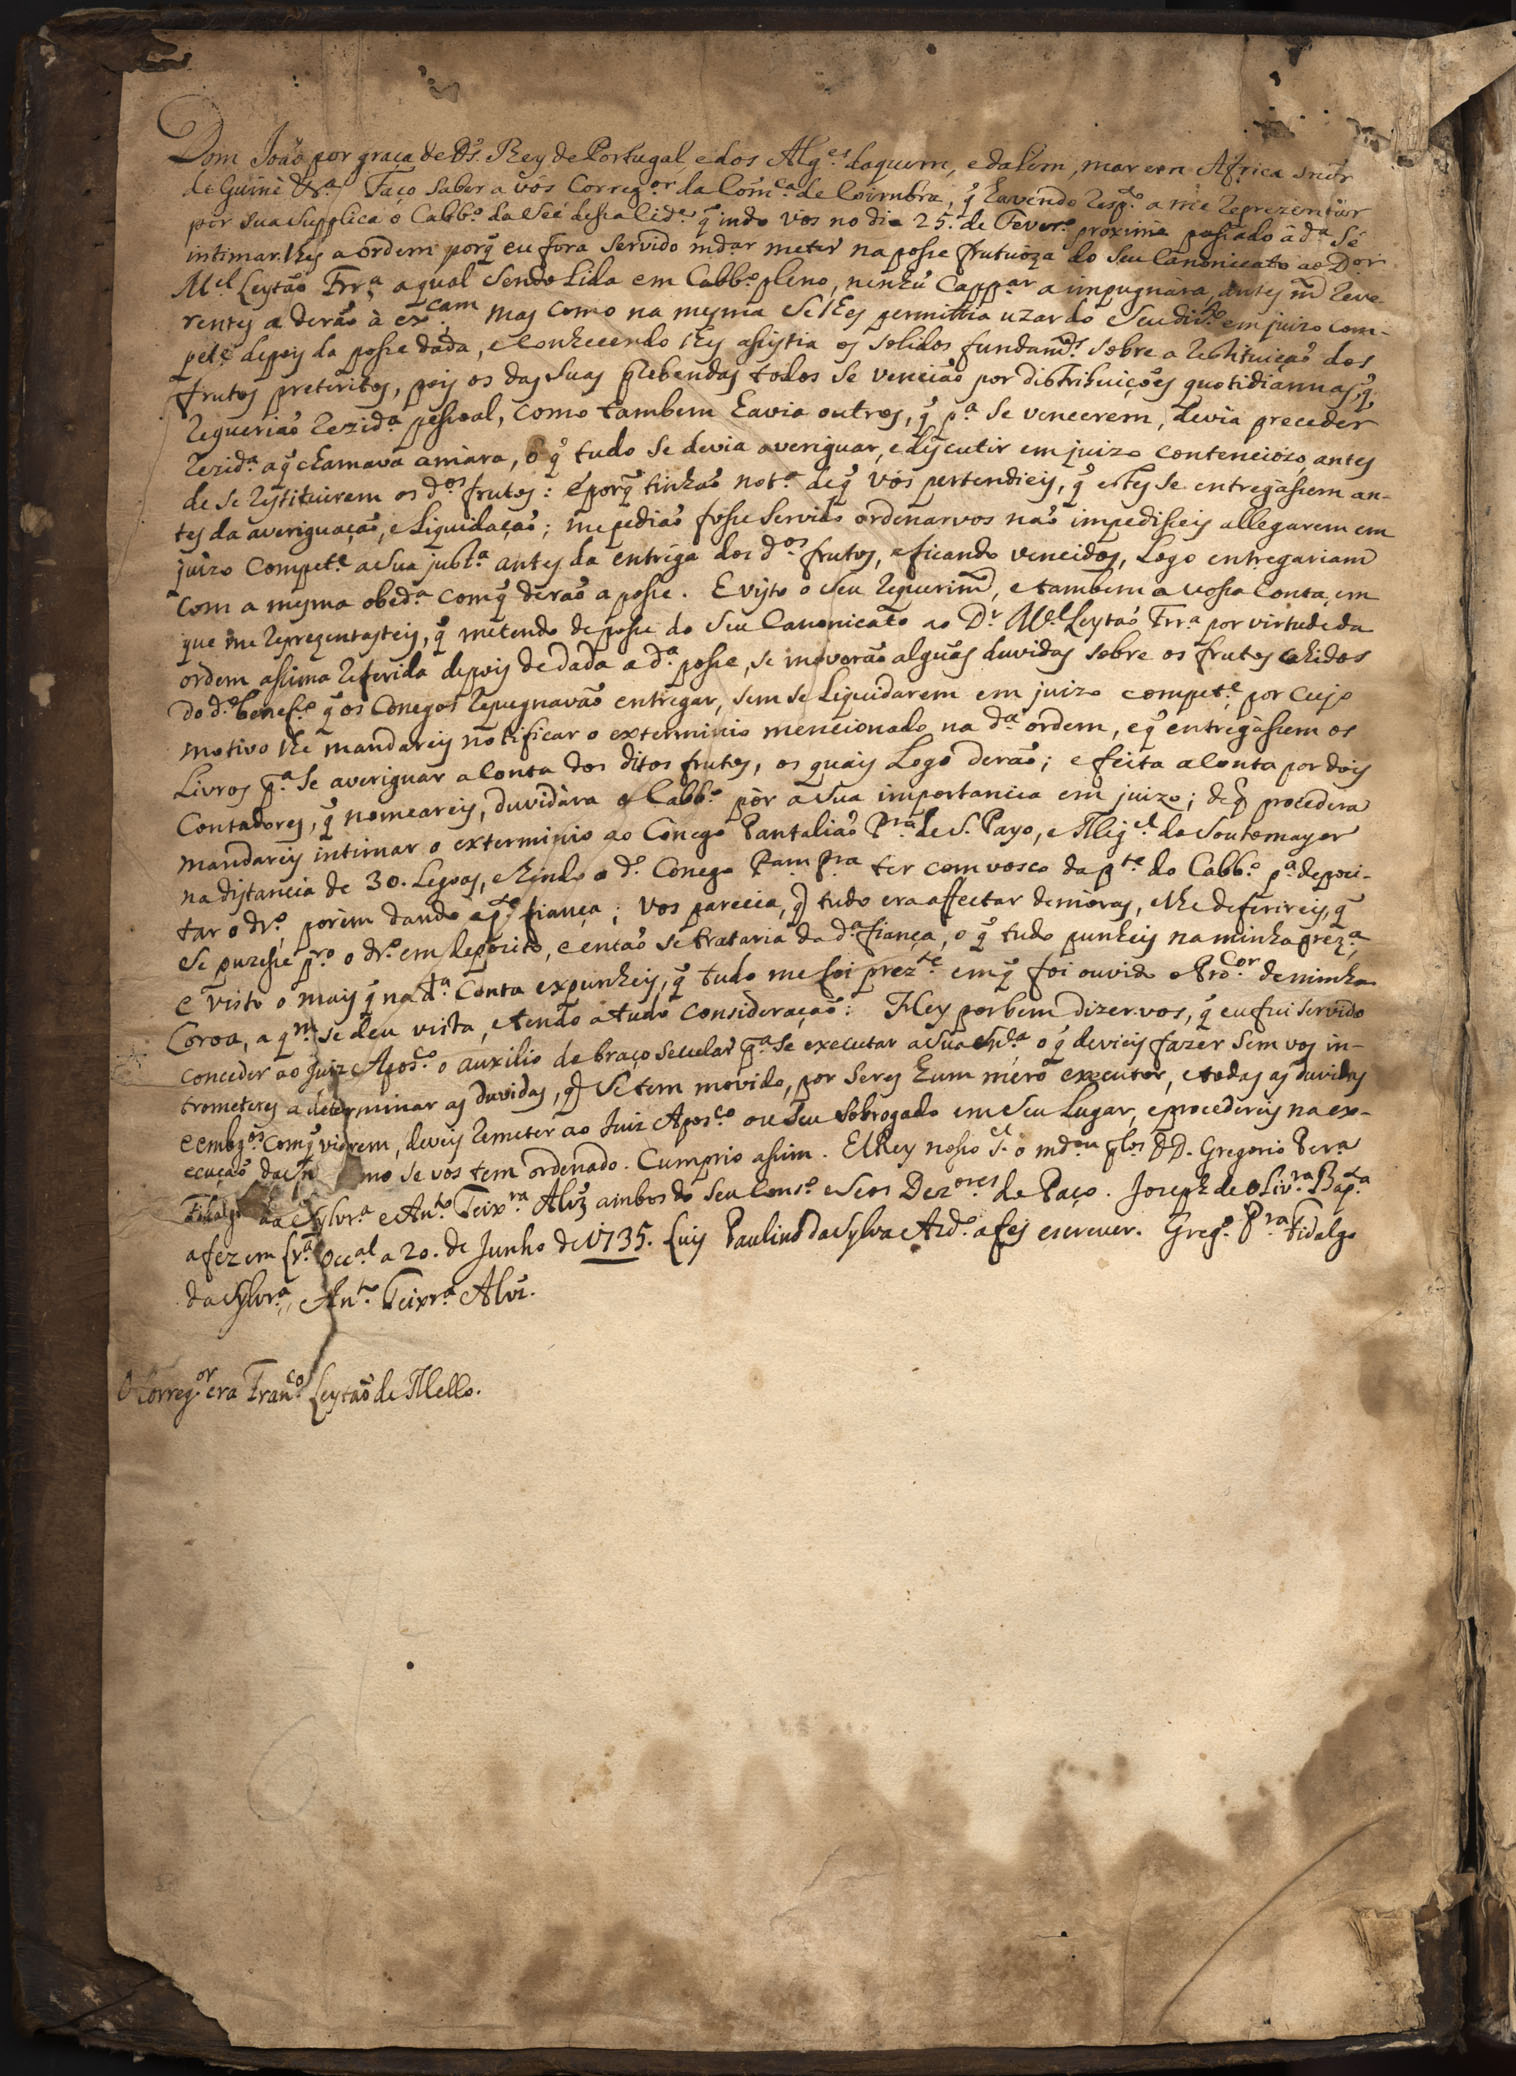 Dom João por graça de Ds. Rey de Portugal e dos Alg.es daquem, e dalem, mar em Africa snr̃
de Guiné &.a Faço saber a vós Correg.or da Com.ca de Coimbra, q̃ havendo resp.to a me reprezentar
por sua supplica o Cabb.o da Seé dessa Cid.e q̃ indo vos no dia 25. de Fever.o proximè passado â d.a Sé
intimar lhes a ordem porq̃ eu fora servido mdar meter na posse frutuoza do seu Canonicato ao D.or
M.el Leytaõ Frr.a aqual sendo Lida em Cabb.o pleno, nenhũ Capp.ar a impugnara, antes m̃ Reve-
rentes a deraõ à ex.cam mas como na mesma se lhes permittia uzar do seu dir.to em juizo com-
pet.e depois da posse dada, e conhecendo lhes assistia os solidos fundam.tos sobre a restituiçaõ dos
frutos preteritos, pois os das suas prebendas todos se venciaõ por distribuições quotidiannas, q̃
requeriaõ rezid.a pessoal, como tambem havia outros, q̃ p.a se vencerem, devia preceder
rezid.a aq̃ chamava amàra, o q̃ tudo se devia averiguar, e discutir em juizo contenciozo, antes
de se restituirem os d.os frutos: e porq̃ tinhaõ not.a de q̃ vós pertendieis, q̃ estes se entregàssem an-
tes da averiguaçaõ, e Liquidaçaõ; me pediaõ fosse servido ordenarvos naõ impedisseis allegarem em
juizo compet.e a sua just.a antes da entrega dos d.os frutos, e ficando vencidos, Logo entregariam
com a mesma obed.a com q̃ deraõ a posse. E visto o seu requerim̃, e tambem a vossa Conta, em
que me reprezentasteis, q̃ metendo de posse do seu Canonicato ao D.r M.el Leytaõ Frr.a por virtude da
ordem assima referida depois de dada a d.a posse, se moveraõ alguãs duvidas sobre os frutos cahidos
do d.o benef.o q̃ os Conegos repugnavaõ entregar, sem se Liquidarem em juizo compet.e por cujo
motivo lhe mandareis notificar o exterminio mencionado na d.a ordem, e q̃ entregàssem os
Livros p.a se averiguar a Conta dos ditos frutos, os quais Logo deraõ; e feita a Conta por dois
Contadores, q̃ nomeareis, duvidàra o Cabb.o pòr a sua importancia em juizo; de q̃ procedera
mandareis intimar o exterminio ao Cònego Pantaliaõ Pr.a de S. Payo, e Mig.el de Soutomayor
na distancia de 30. Legoas, e hindo o d.o Conego Pam Pr.a ter comvosco da p.te do Cabb.o p.a depoci-
tar o dr.o porèm dando ap.to fiança; vos parecia, q̃ tudo era affectar demòras, e lhe deferireis, q̃
se puzesse pr.o o dr.o em deposito, e entaõ se trataria da d.a fiança, o q̃ tudo punheis na minha prez.a
e visto o mais q̃ na d.a Conta expunheis, q̃ tudo me foi prez.te em q̃ foi ouvido o Pro.cor de minha
Coroa, a q.m se deu vista, e tendo a tudo consideraçaõ: Hey por bem dizervos, q̃ eu fui servido
conceder ao Juiz Apos.co o auxilio de braço secular p.a se executar a sua sn̄.a o q̃ devieis fazer sem vos in-
trometeres a determinar as duvidas, q̃ se tem movido, por seres hum mèro executor, e todas as duvidas
e embg.os com q̃ vierem, deveis remeter ao Juiz Apos.co ou seu sobrogado em seu Lugar, e procedereis na ex-
ecuçaõ da sn mo se vos tem ordenado. Cumprio assim. ElRey nosso S.r o md.ou p.los DD. Gregorio Per.a
Fidalgo da Sylvr.a e An.to Teix.ra Alvz̃ ambos do seu Cons.o e seos Dez.ores de Paço. Joseph de Oliv.ra Bap.ta
a fez em Lx.a occ.al a 20. de Junho de 1735. Luis Paulino da Sylva Azd.o a fes escrever. Greg.o Pr.a Fidalgo
da Sylvr.a, An.to Teixr.a Alvz̃.
O Correg.or era Fran.co Leytaõ de Mello.